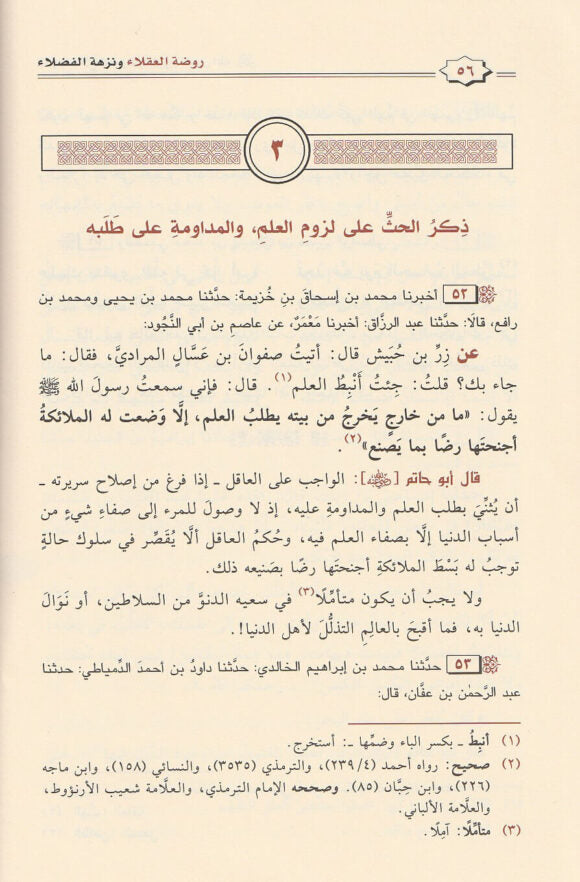 ٥٦
روضة العقلاء ونزهة الفضلاء
٣
ذِكرُ الحثِّ على لزوم العلمِ، والمداومة على طَلَبه
٥٢ أخبرنا محمد بن إسحاق بنِ خُزيمة: حدَّثنا محمد بن يحيى ومحمد بن
رافع، قالَا: حدَّثنا عبد الرزاق: أخبرنا مَعْمَرٌ، عن عاصمِ بن أبي النَّجُود:
عن زِرِّ بن حُبَيْش قال: أتيتُ صفوانَ بن عَسَّالٍ المراديَّ، فقال: ما
جاء بك؟ قلتُ: جِئتُ أَنْبِطُ العلم(١). قال: فإني سمعتُ رسولَ الله ﷺ
يقول: «ما من خارجٍ يَخرجُ من بيته يطلبُ العلم، إلَّا وَضعت له الملائكةُ
أجنحتَها رضًا بما يَصنع»(٢).
قال أبو حاتم [رضي الله عنه]: الواجب على العاقل ـ إذا فرغ من إصلاح سريرته ـ
أن يُثنِّيَ بطلب العلم والمداومة عليه، إذ لا وصولَ للمرء إلى صفاءِ شيءٍ من
أسباب الدنيا إلَّا بصفاء العلم فيه، وحُكمُ العاقل ألَّا يُقَصِّر في سلوك حالةٍ
توجبُ له بَسْطَ الملائكةِ أجنحتَها رضًا بصَنيعه ذلك.
ولا يجبُ أن يكون متأمِّلًا(٣) في سعيه الدنوَّ من السلاطين، أو نَوَالَ
الدنيا به، فما أقبحَ بالعالِمِ التذلُّلَ لأهل الدنيا!.
٥٣ حدَّثنا محمد بن إبراهيم الخالدي: حدَّثنا داودُ بن أحمدَ الدِّمياطي: حدثنا
عبد الرَّحمٰن بن عفَّان، قال:
(١) أنبِطُ ـ بكسر الباء وضمِّها ـ: أستخرج.
(٢) صحيح: رواه أحمد (٢٣٩/٤)، والترمذي (٣٥٣٥)، والنسائي (١٥٨)، وابن ماجه
(٢٢٦)، وابن حِبَّان (٨٥). وصححه الإمام الترمذي، والعلَّامة شعيب الأرنؤوط،
والعلَّامة الألباني.
(٣) متأمِّلًا: آمِلًا.